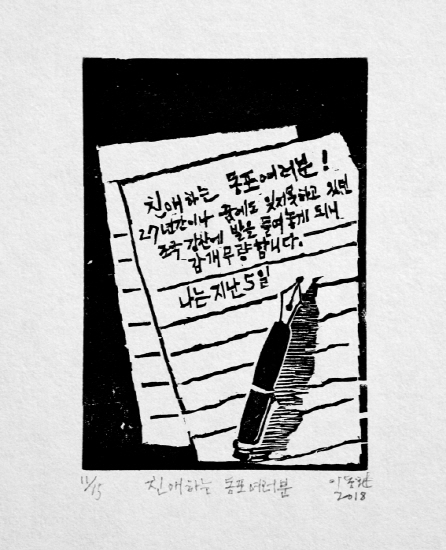 친애하는 동포여러분!
27년간이나 꿈에도 잊지못하고 있던
조국 강산에 발을 들여놓게 되니
감개무량합니다.
나는 지난 5일
11/15 친애하는 동포여러분
2018